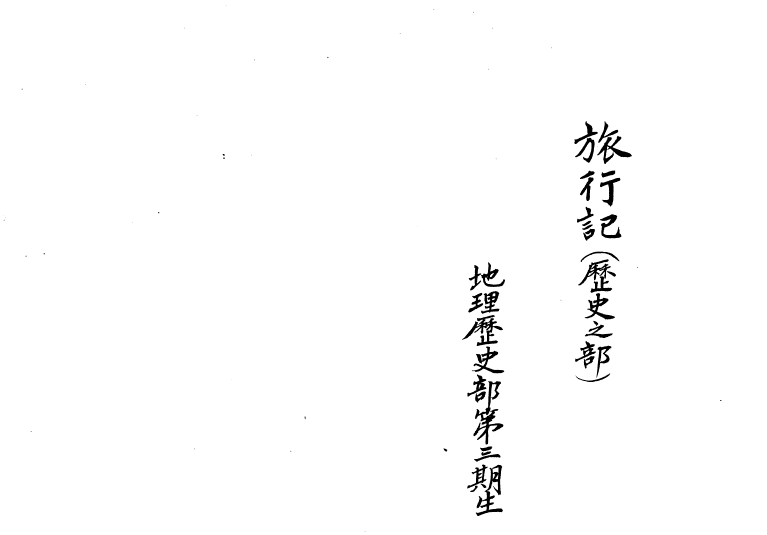 旅行記(歴史之部)
地理歴史部第三期生